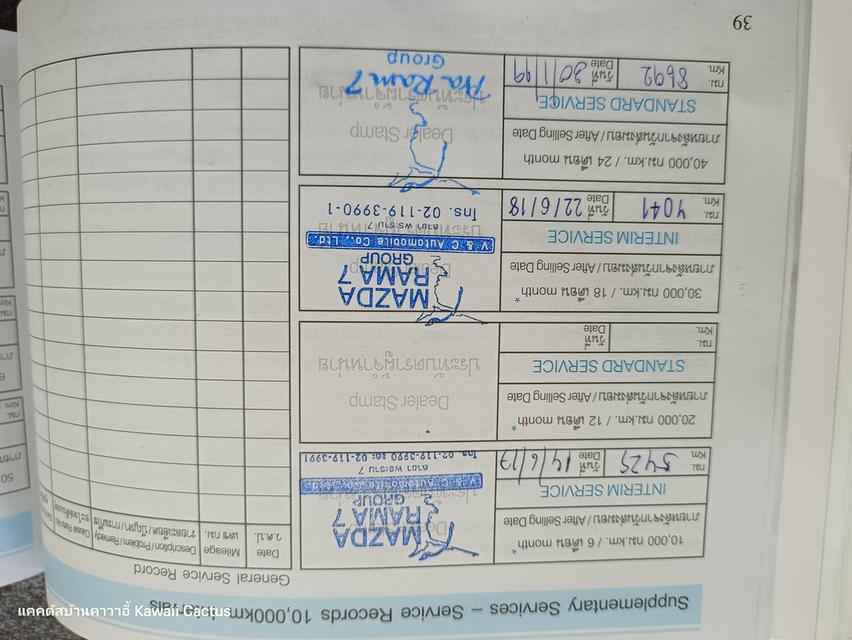 Supplementary Services – Service Records 10,000km
General Service Record
10,000 กม.km. / 6 เดือน month *
ภายหลังจากวันส่งมอบ / After Selling Date
INTERIM SERVICE
กม. Km. 5425 วันที่ Date 14/6/17
MAZDA
RAMA 7
GROUP
V & C Automobile Co., Ltd.
สาขา พระราม 7
โทร. 02-119-3990 และ 02-119-3991
20,000 กม.km. / 12 เดือน month *
ภายหลังจากวันส่งมอบ / After Selling Date
STANDARD SERVICE
กม. Km. วันที่ Date
Dealer Stamp
ประทับตราผู้จำหน่าย
30,000 กม.km. / 18 เดือน month *
ภายหลังจากวันส่งมอบ / After Selling Date
INTERIM SERVICE
กม. Km. 7041 วันที่ Date 22/6/18
MAZDA
RAMA 7
GROUP
V & C Automobile Co., Ltd.
สาขา พระราม 7
โทร. 02-119-3990-1
40,000 กม.km. / 24 เดือน month
ภายหลังจากวันส่งมอบ / After Selling Date
STANDARD SERVICE
กม. Km. 8692 วันที่ Date 30/1/19
Dealer Stamp
ประทับตราผู้จำหน่าย
Pra Ram 7
Group
ว.ด.ป. Date
เลข กม. Mileage
รายละเอียด/ปัญหา/การแก้ไข
Description/Problem/Remedy
Causal Parts No.
39
แคคตัสบ้านคาวาอี้ Kawaii Cactus